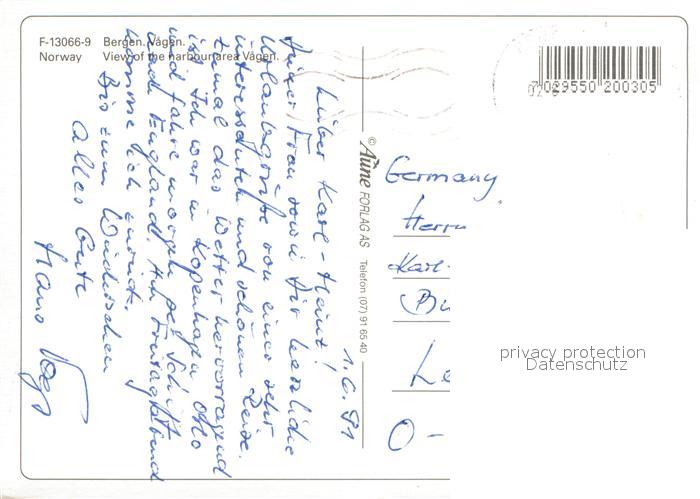 F-13066-9 Bergen. Vågen.
Norway View of the harbour area Vågen.
7 029550 200305
© Aune FORLAG AS Telefon (07) 91 65 40
1.6.91
Lieber Karl-Heinz!
Deiner Frau sowie Dir herzliche
Urlaubsgrüße von einer sehr
interessanten und schönen Reise.
zumal das Wetter hervorragend
ist. Ich war in Kopenhagen Oslo
und fahre morgen per Schiff
nach England. Am Freitagabend
komme ich zurück.
Bis zum Wiedersehen
Alles Gute
Hans
Germany
Herrn
Karl-
Bu
Le
O-
privacy protection
Datenschutz